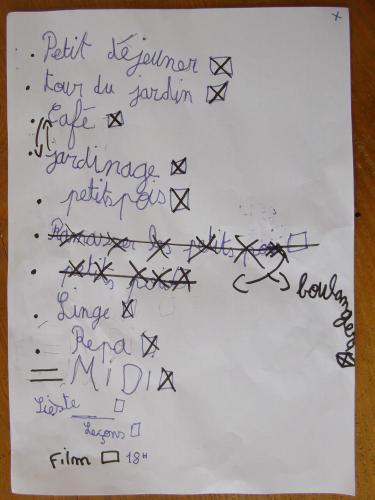 Petit déjeuner
tour du jardin
Café
jardinage
petits pois
Ramasser les petits pois
petits
boulangerie
Linge
Repa
MIDI
Sièste
Leçons
Film 18H